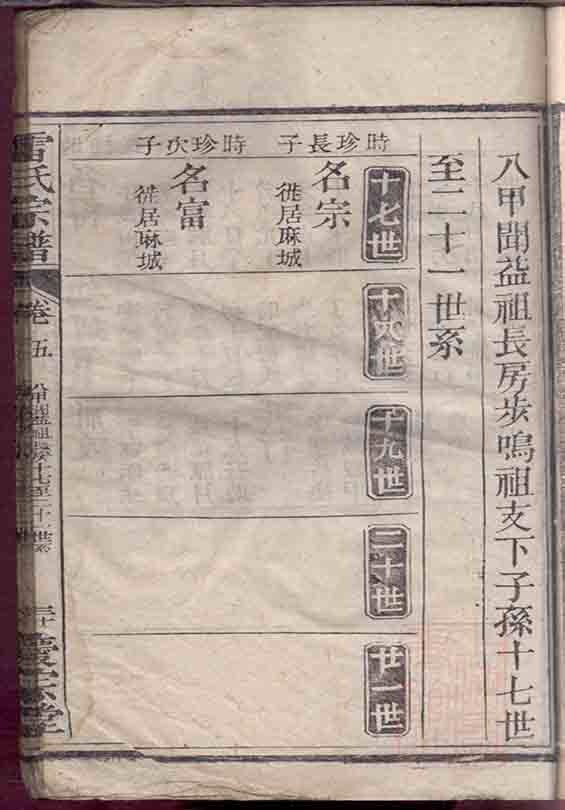 八甲聞益祖長房步鳴祖支下子孫十七世
至二十一世系
十七世
十八世
十九世
二十世
廿一世
時珍長子
名宗
徙居麻城
時珍次子
名富
徙居麻城
雷氏宗譜
卷五